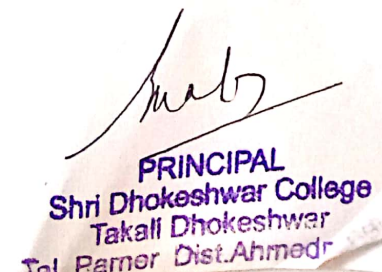 PRINCIPAL
Shri Dhokeshwar College
Takali Dhokeshwar
Tal. Parner Dist.Ahmedr